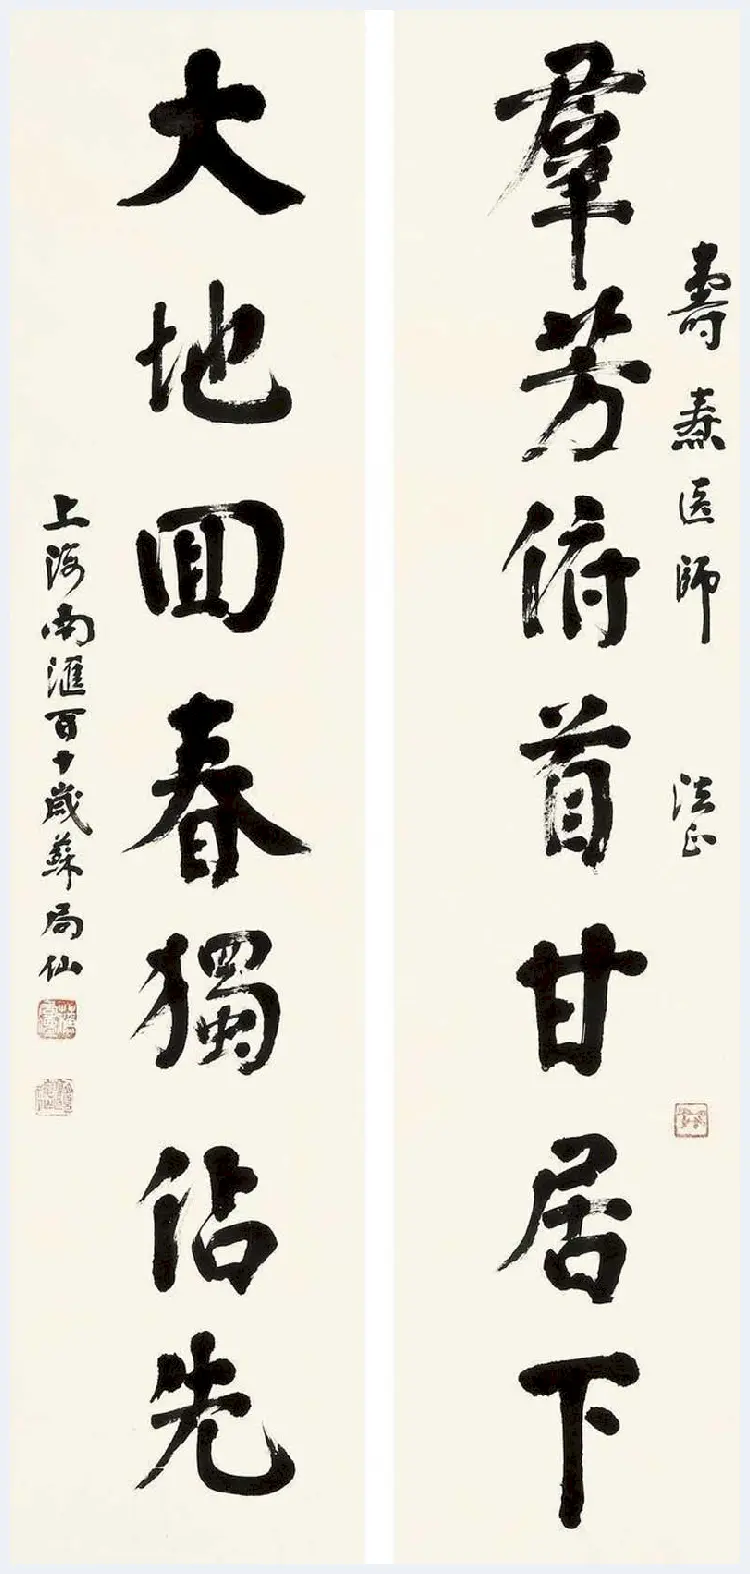 壽燾医師 法正
羣芳俯首甘居下
大地回春獨佔先
上海南滙百十歲蘇局仙